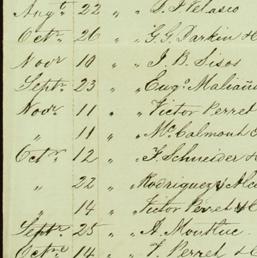 Augto 22 " " S. J. Velasco
Octr. 26 " " G. G. Darkin &
Novr 10 " " J. B. Sisos
Septr. 23 " " Eugo. Maliañ
Novr. 11 " " Victor Perret
" 11 " " Mc Calmont &
Octr. 12 " " F. Schneider &
" 22 " " Rodriguez y
" 14 " " Victor Perret &
Septr. 25 " " A.
Octre 14 " " V. Perret &